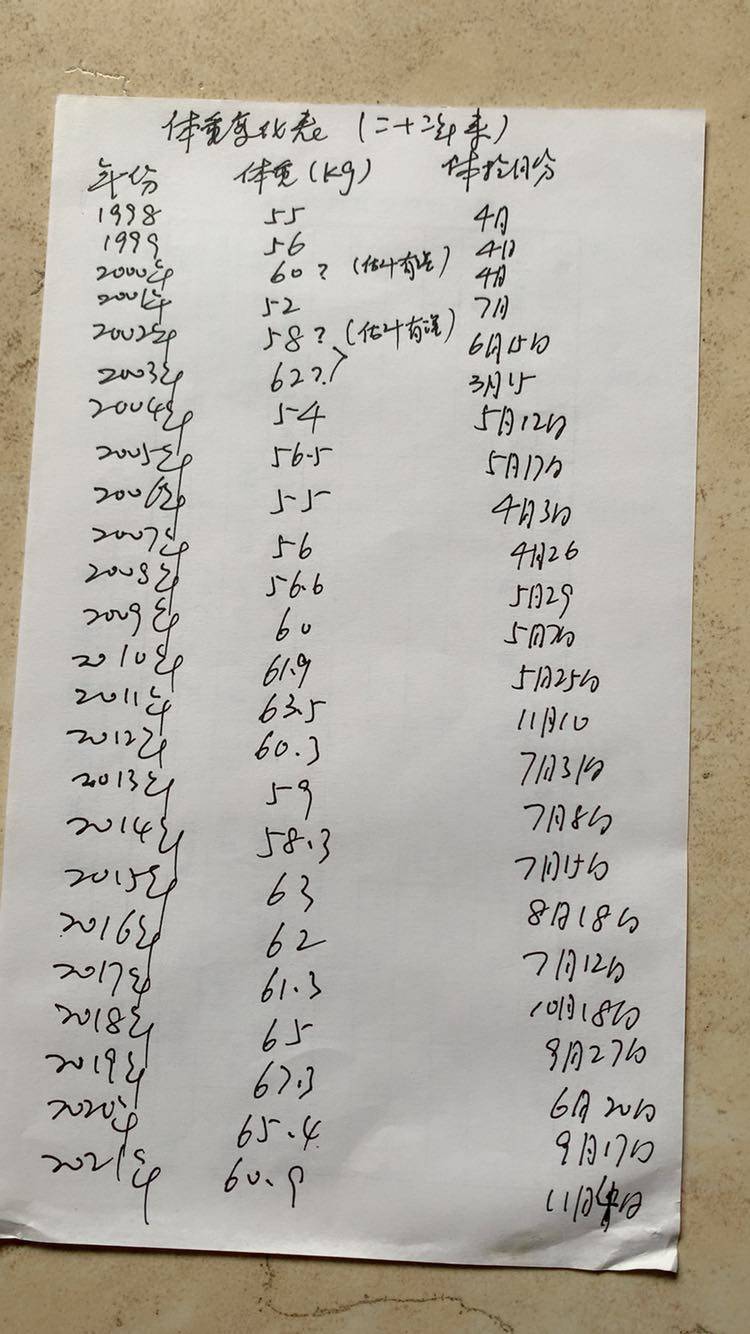 体重变化表 (二十二年来)
年份 体重(kg) 体检月份
1998 55 4月
1999 56 4月
2000年 60? (估计有误) 4月
2001年 52 7月
2002年 58? (估计有误) 6月15日
2003年 62? 3月15
2004年 54 5月12日
2005年 56.5 5月17日
2006年 55 4月3日
2007年 56 4月26
2008年 56.6 5月29
2009年 60 5月
2010年 61.9 5月25日
2011年 63.5 11月10
2012年 60.3 7月31日
2013年 59 7月8日
2014年 58.3 7月15日
2015年 63 8月18日
2016年 62 7月12日
2017年 61.3 10月18日
2018年 65 9月27日
2019年 67.3 6月20日
2020年 65.4 9月17日
2021年 60.9 11月4日